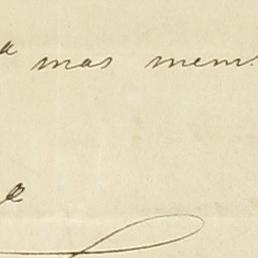 a mas mem
e